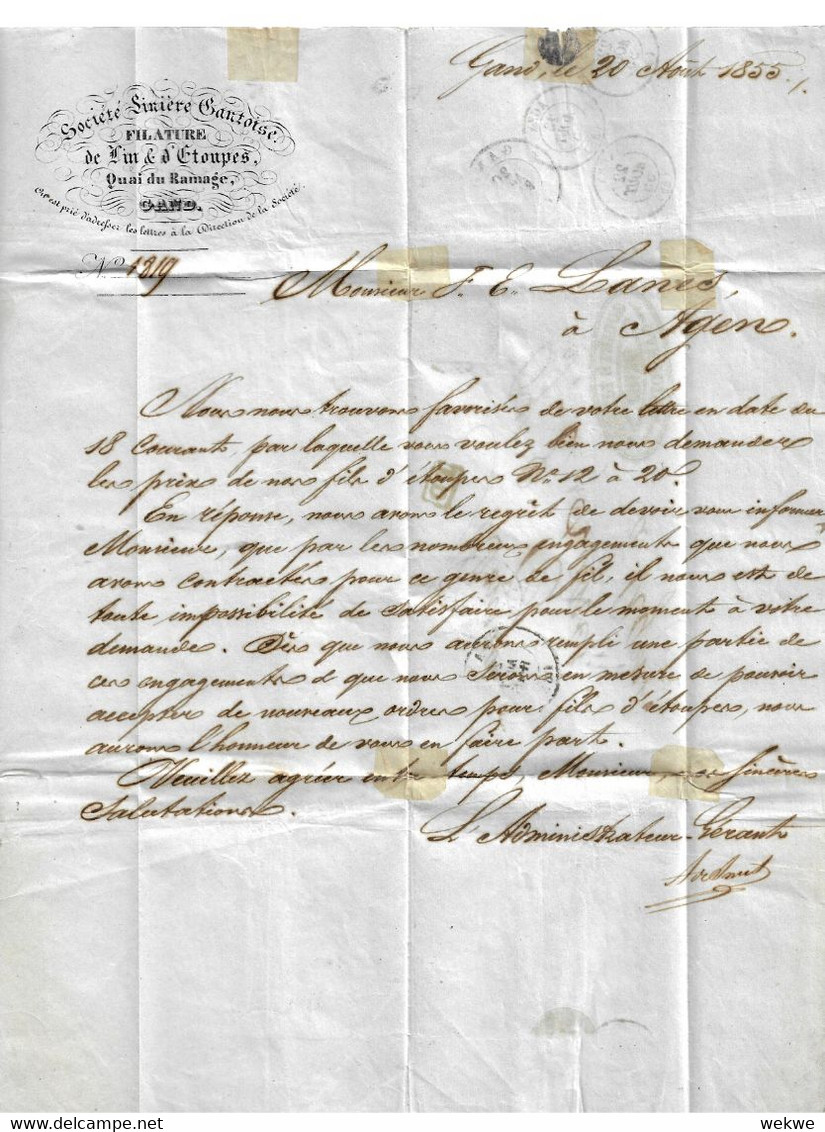 Gand, le 20 Août 1855.
Société Linière Gantoise.
FILATURE
de Lin & d'Etoupes,
Quai du Ramage,
GAND.
On est prié d'adresser les lettres à la Direction de la Société.
N° 1819
Monsieur F. E. Lanes,
à Agen.
Nous nous trouvons favorisés de votre lettre en date du
18 courant, par laquelle vous voulez bien nous demander
les prix de nos fils d'étoupes N° 12 à 20.
En réponse, nous avons le regrêt de devoir vous informer
Monsieur, que par les nombreux engagements que nous
avons contractés pour ce genre de fil, il nous est de
toute impossibilité de satisfaire pour le moment à votre
demande. Dès que nous aurons rempli une partie de
ces engagements & que nous serons en mesure de pouvoir
accepter de nouveaux ordres pour fils d'étoupes, nous
aurons l'honneur de vous en faire part.
Veuillez agréer entre temps, Monsieur, nos sincères
salutations.
L'Administrateur-Gérant
www.delcampe.net
wekwe